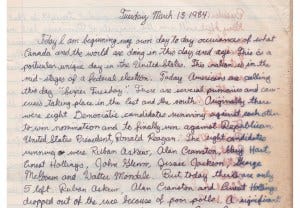 Tuesday, March 13 1984
Today I am beginning my own day to day occurance of what
Canada and the world are doing in this day and age. This is a
particular unique day in the United States. This nation is in the
mid-stages of a federal election. Today Americans are calling
this day "Super Tuesday". There are several primaries and cau-
cuses taking place in the East and the south. Originally there
were eight Democratic candidates running against each other
to win nomination and to finally run against Republican
United States President Ronald Reagan. The eight candidates
running were Ruban Askew, Alan Cranston, Gary Hart,
Ernest Hollings, John Glenn, Jessie Jackson, George
McGovern and Walter Mondale. But today there are only
5 left. Ruban Askew, Alan Cranston and Ernest Hollings
dropped out of the race because of poor polls. A significant